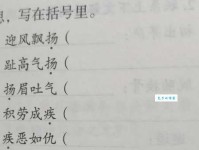 思，写在括号里。
迎风飘扬（
趾高气扬（
扬眉吐气（
积劳成疾（
疾恶如仇（